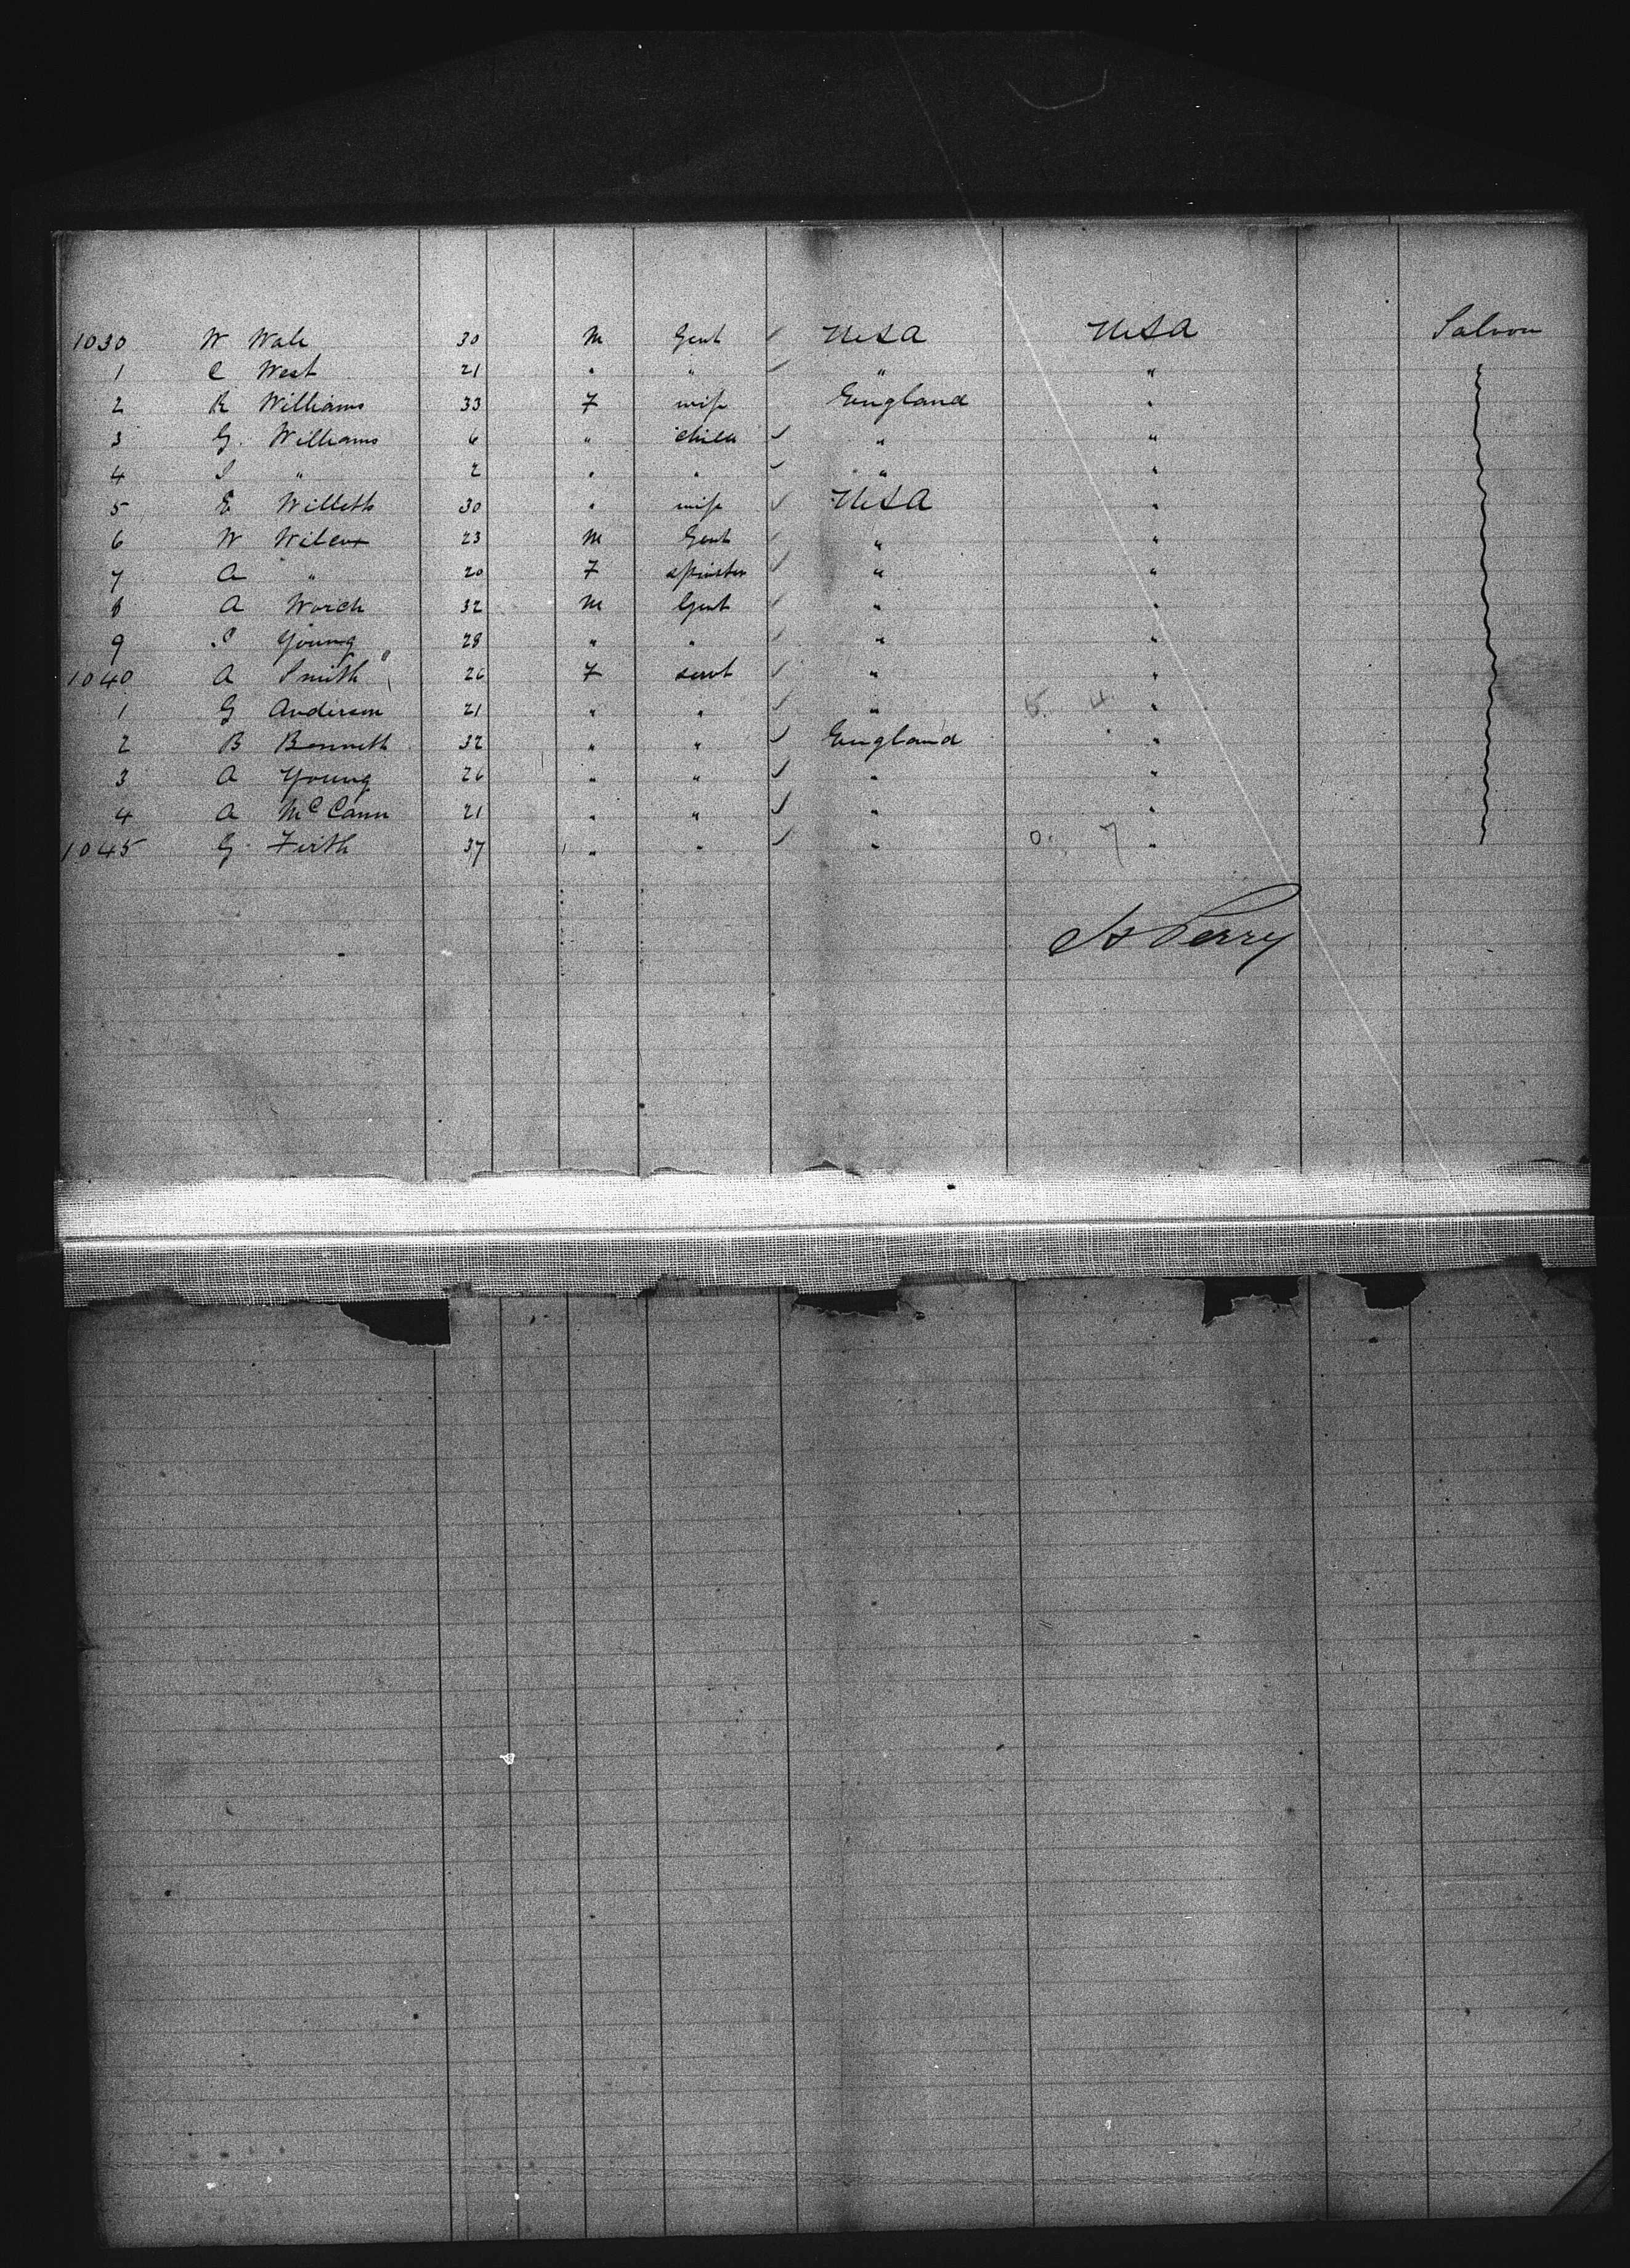 1030 W Wale 30 M Gent ✓ USA USA Saloon
1 C West 21 " " ✓ " "
2 R Williams 33 F wife England "
3 G. Williams 6 " child ✓ " "
4 S " 2 " " ✓ " "
5 E Willetts 30 " wife ✓ USA "
6 W Wilcox 23 M Gent ✓ " "
7 A " 20 F spinster ✓ " "
8 A Worch 32 M Gent ✓ " "
9 S Young 28 " " ✓ " "
1040 A Smith 26 F servt ✓ " "
1 G Anderson 21 " " ✓ " "
2 B Bennett 32 " " ✓ England "
3 A Young 26 " " ✓ " "
4 A McCann 21 " " ✓ " "
1045 G. Firth 37 " " ✓ " 0. 7 "
Perry